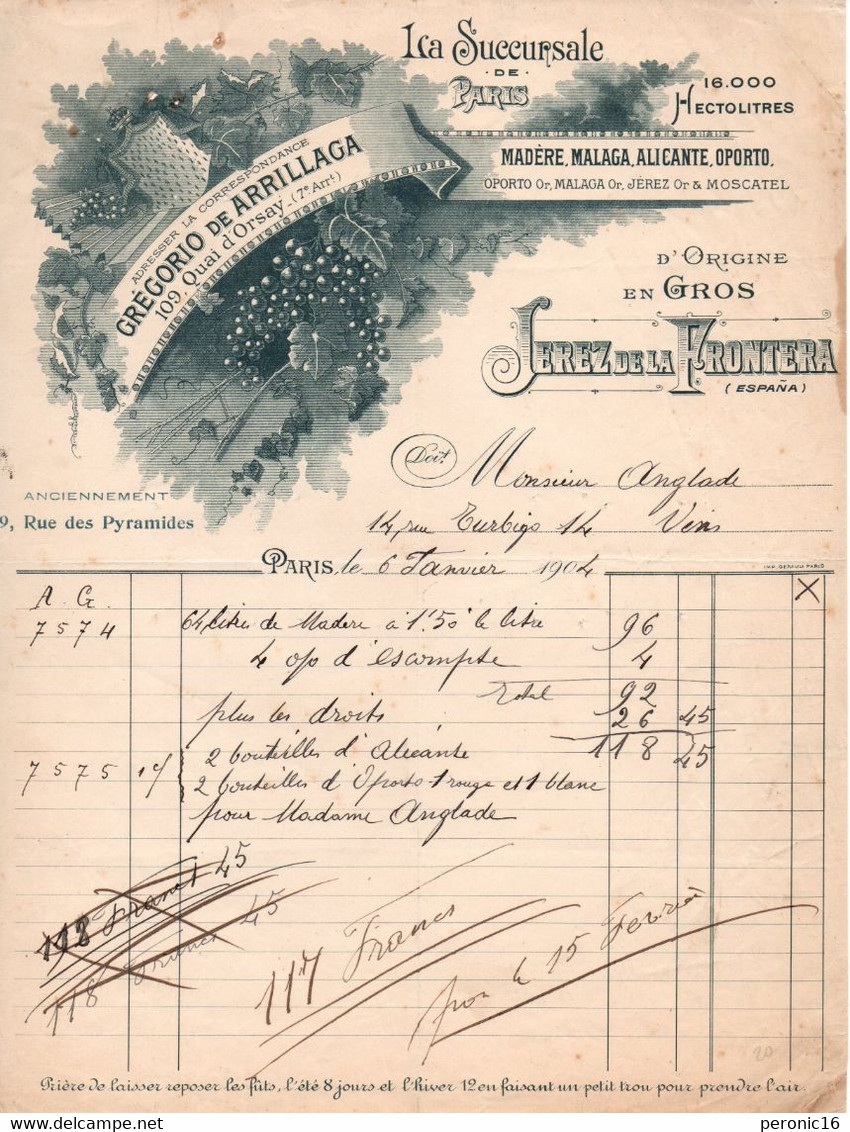 La Succursale
DE
PARIS
16.000
HECTOLITRES
MADÈRE, MALAGA, ALICANTE, OPORTO,
OPORTO Or, MALAGA Or, JÉREZ Or & MOSCATEL
ADRESSER LA CORRESPONDANCE
GRÉGORIO DE ARRILLAGA
109, Quai d'Orsay (7e Arrt)
D'ORIGINE
EN GROS
JEREZ DE LA FRONTERA
(ESPAÑA)
Doit
Monsieur Anglade
ANCIENNEMENT
9, Rue des Pyramides
14, rue Turbigo 14 Vins
PARIS, le 6 Janvier 1904
IMP. GERAULT PARIS
A. G.
7574 64 litres de Madere à 1f50 le litre 96
4 o/o d'escompte 4
Total 92
plus les droits 26 45
2 bouteilles d'Alicante 118 45
7575
2 bouteilles d'Oporto 1 rouge et 1 blanc
pour Madame Anglade
118 Francs 45
118 Francs 45
117 Francs
pour le 15 Fevrier
20
Prière de laisser reposer les fûts, l'été 8 jours et l'hiver 12 en faisant un petit trou pour prendre l'air.
peronic16